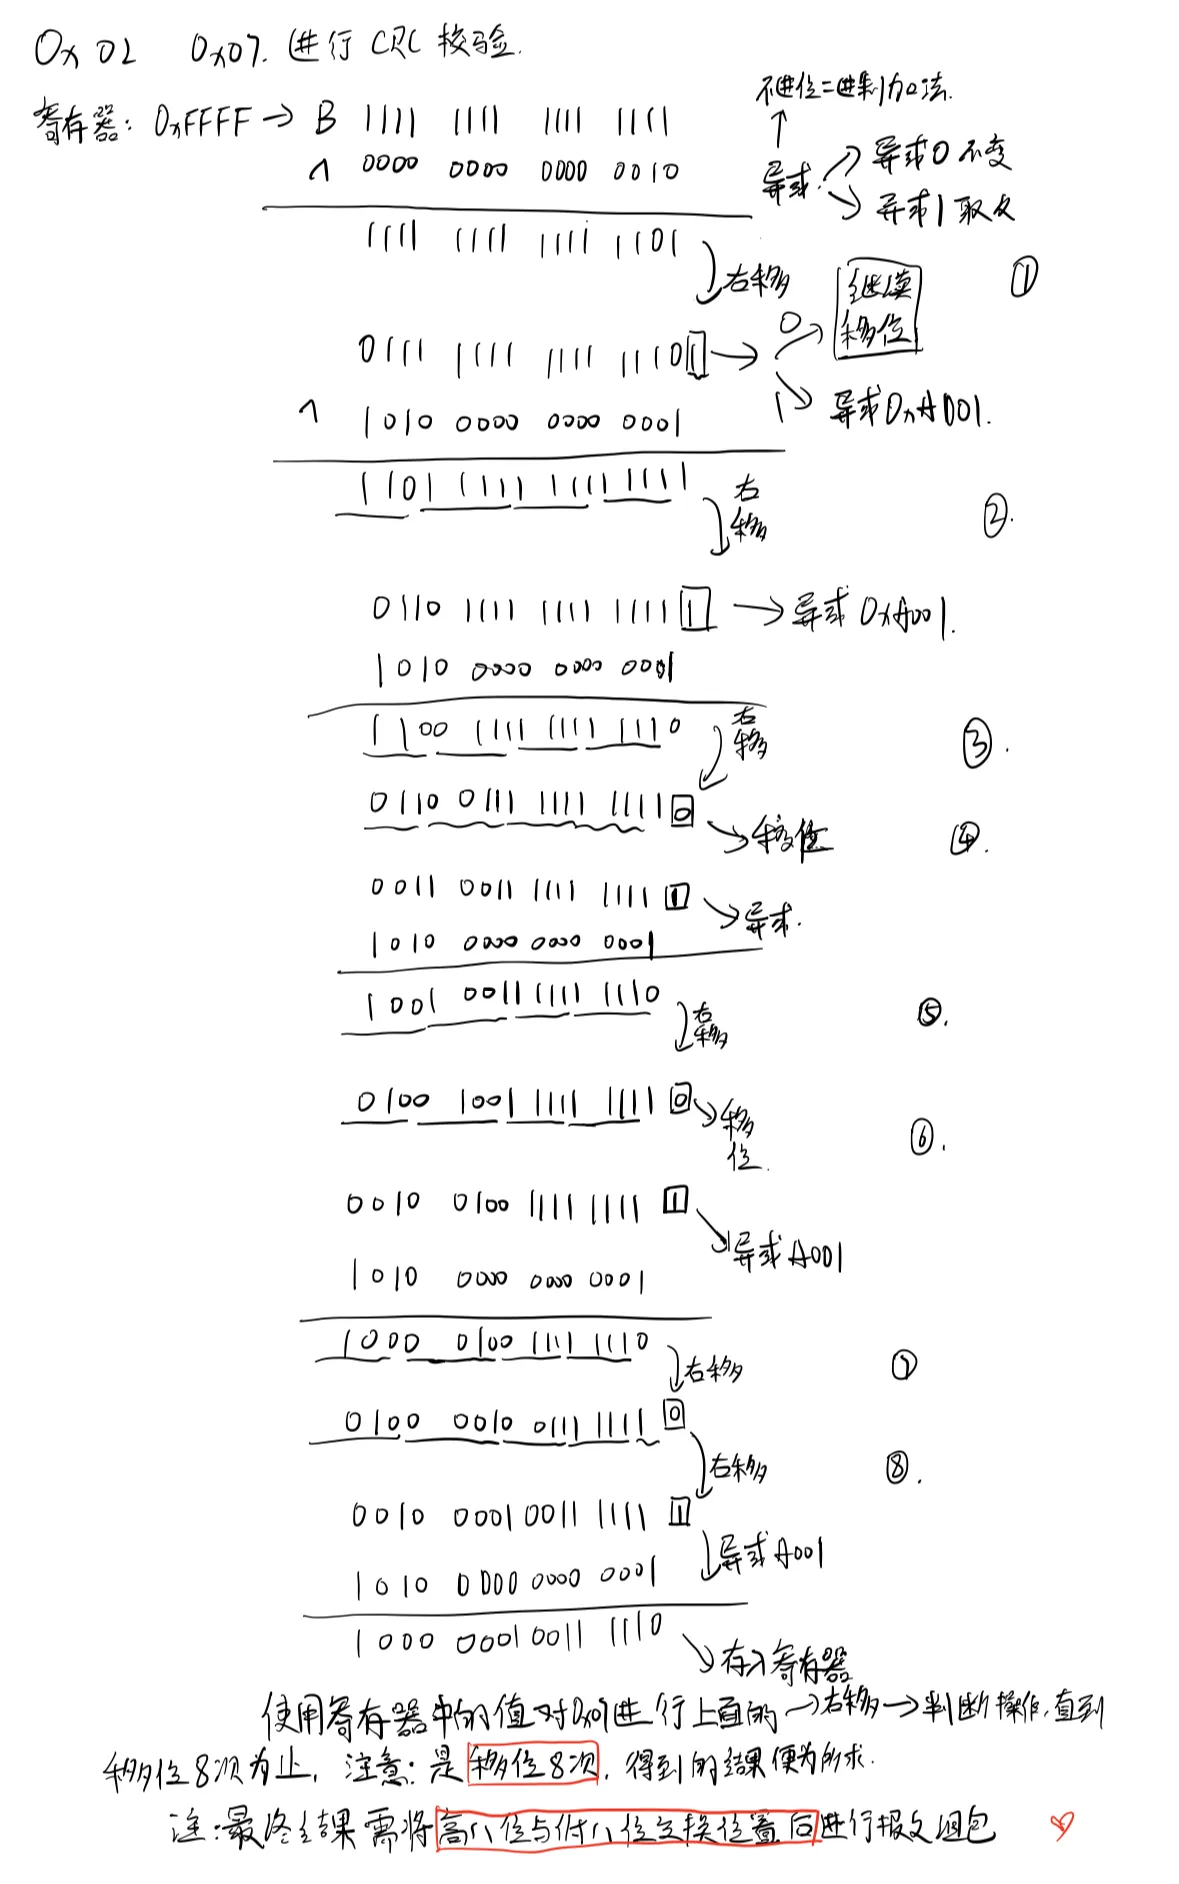 0x02 0x07. 进行 CRC 校验.
不进位二进制加法.
寄存器: 0xFFFF → B 1111 1111 1111 1111
^ 0000 0000 0000 0010
异或. 异或0 不变
异或1 取反
1111 1111 1111 1101
右移
①
0 继续移位
0111 1111 1111 1110 1 →
1 异或0xA001.
^ 1010 0000 0000 0001
1101 1111 1111 1111
右移
②.
0110 1111 1111 1111 1 → 异或 0xA001.
1010 0000 0000 0001
1100 1111 1111 1110
右移
③.
0110 0111 1111 1111 0
移位
④.
0011 0011 1111 1111 1
异或.
1010 0000 0000 0001
1001 0011 1111 1110
右移
⑤.
0100 1001 1111 1111 0
移位.
⑥.
0010 0100 1111 1111 1
异或 A001
1010 0000 0000 0001
1000 0100 1111 1110
右移
⑦
0100 0010 0111 1111 0
右移
⑧.
0010 0001 0011 1111 1
异或 A001
1010 0000 0000 0001
1000 0001 0011 1110
存入寄存器
使用寄存器中的值对0x07进行上面的 → 右移 → 判断操作, 直到
移位8次为止, 注意: 是移位8次, 得到的结果便为所求.
注: 最终结果需将高八位与低八位交换位置后进行报文组包